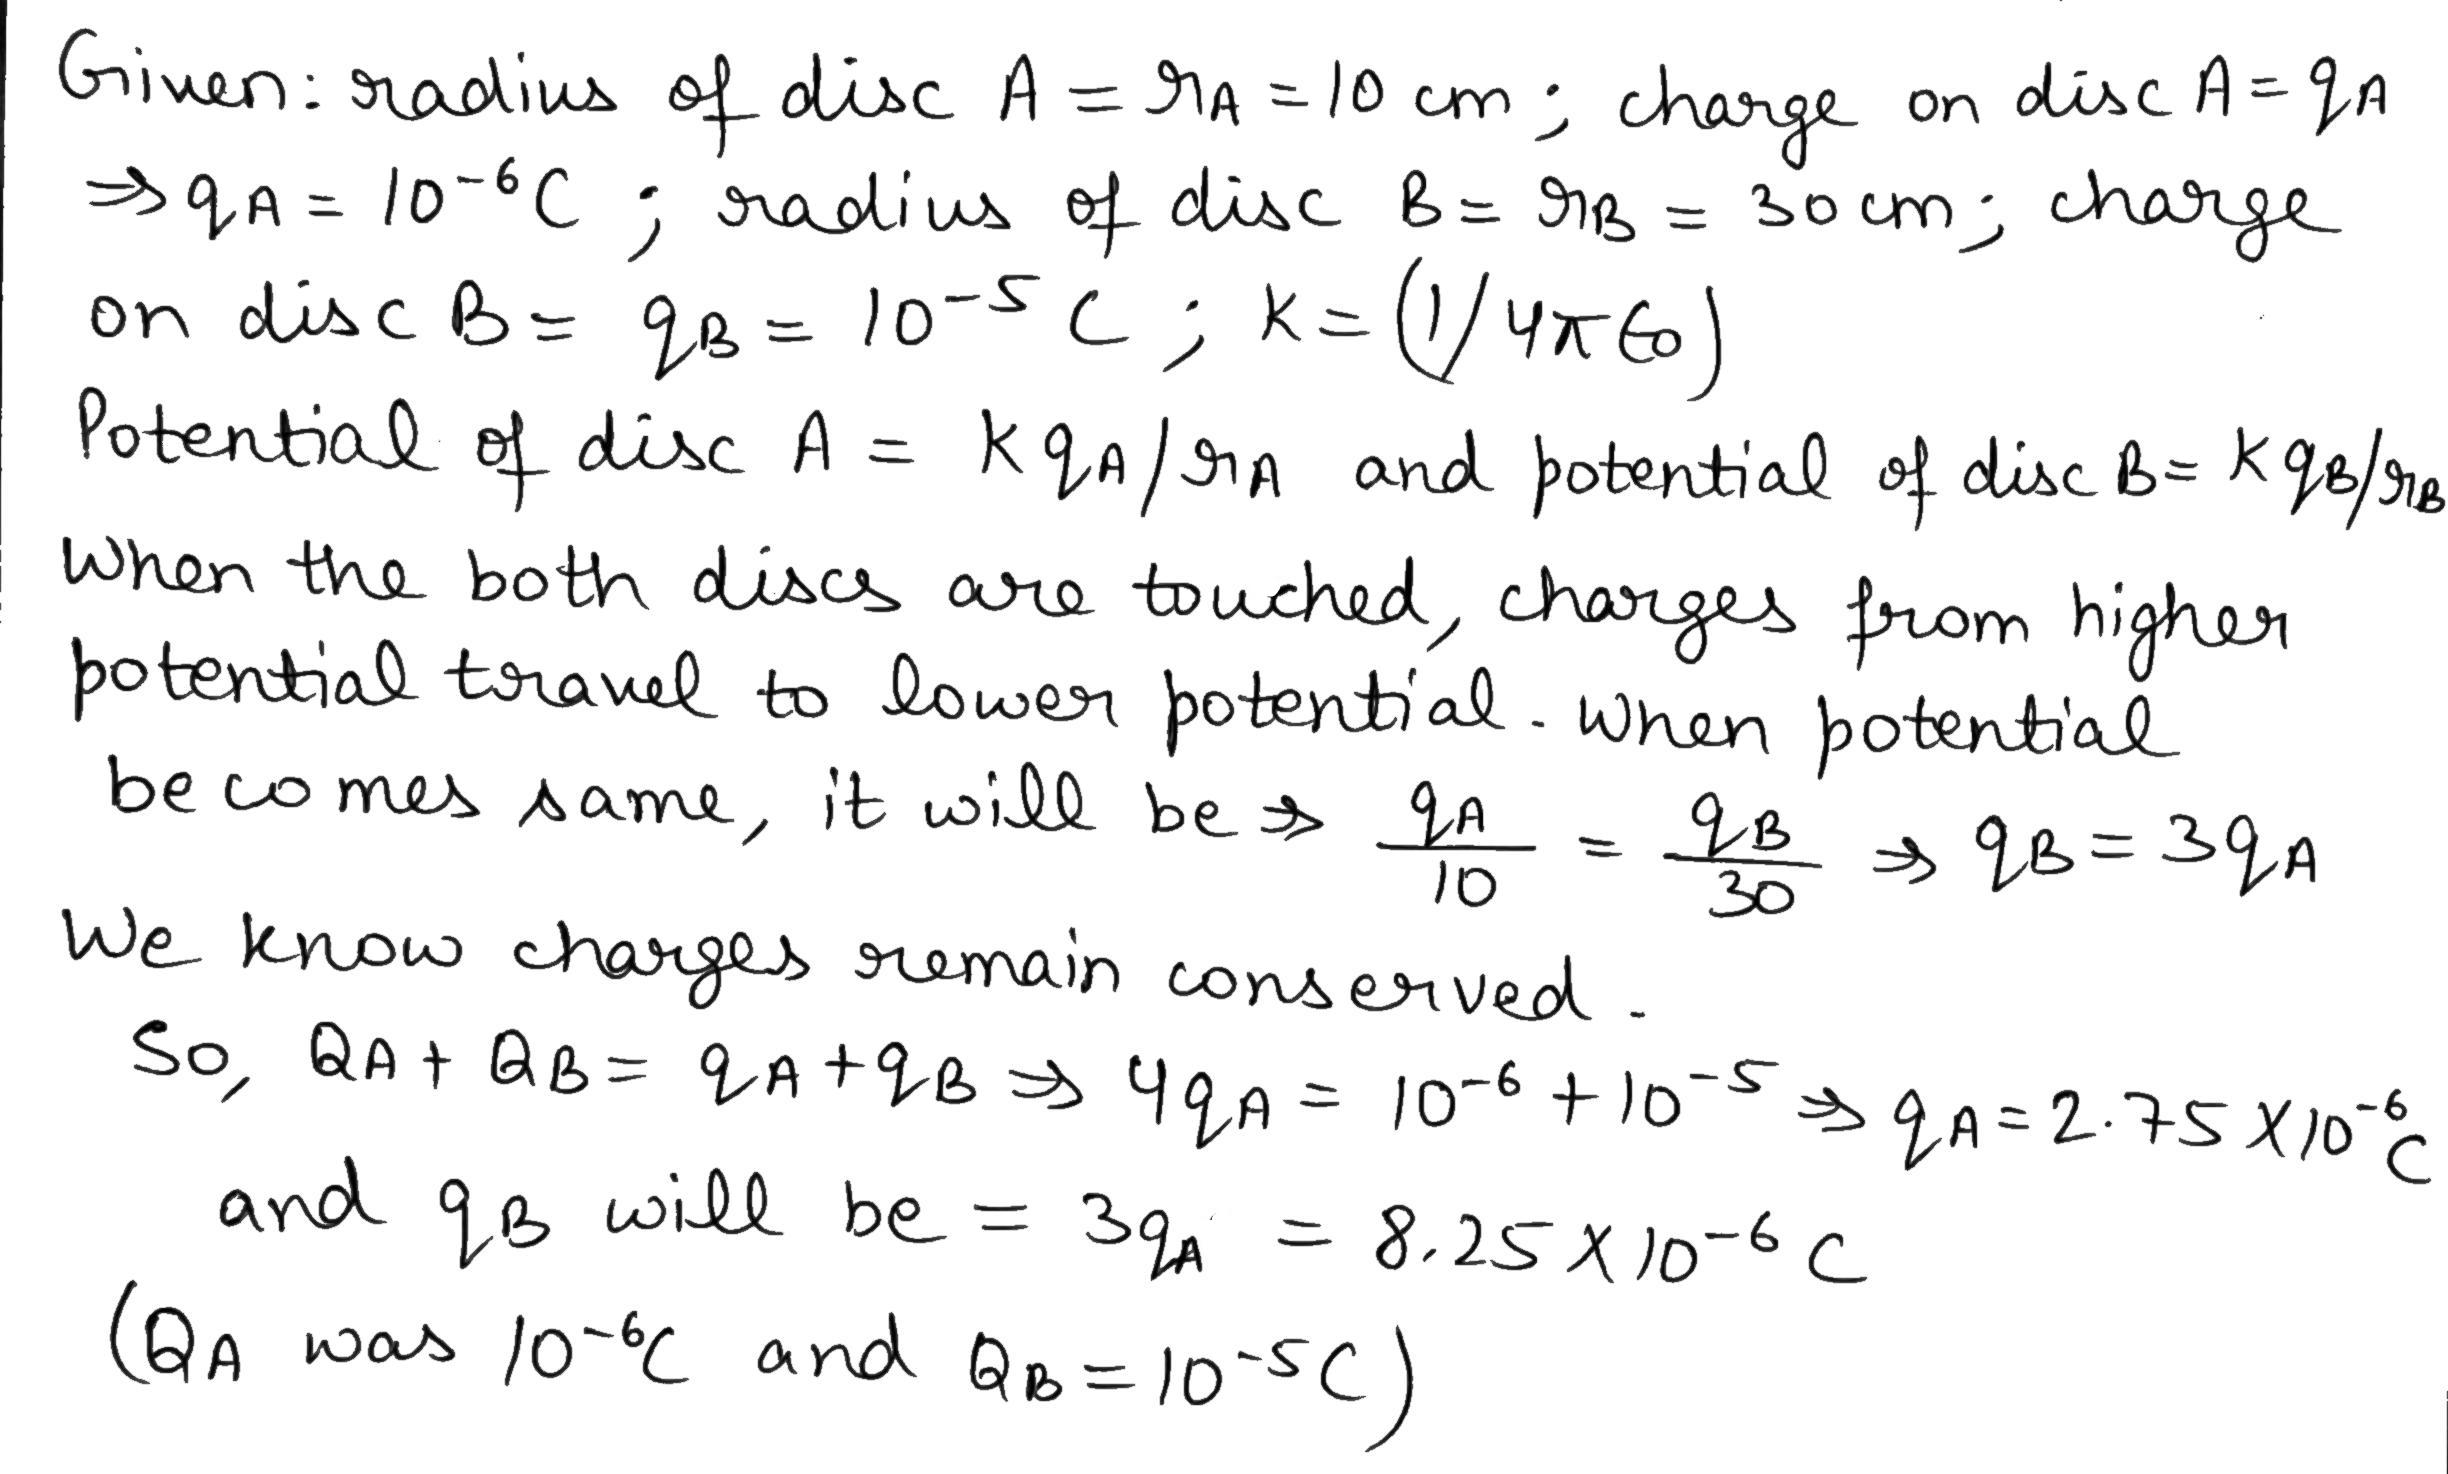 Given: radius of disc A = rA = 10 cm ; charge on disc A = qA
⇒ qA = 10⁻⁶ C ; radius of disc B = rB = 30 cm ; charge
on disc B = qB = 10⁻⁵ C ; K = (1/4π∈o)
Potential of disc A = KqA/rA and potential of disc B = KqB/rB
When the both discs are touched, charges from higher
potential travel to lower potential. When potential
becomes same, it will be ⇒ qA/10 = qB/30 ⇒ qB = 3qA
We know charges remain conserved.
So, QA + QB = qA + qB ⇒ 4qA = 10⁻⁶ + 10⁻⁵ ⇒ qA = 2.75 X 10⁻⁶ C
and qB will be = 3qA = 8.25 X 10⁻⁶ C
(QA was 10⁻⁶C and QB = 10⁻⁵C)